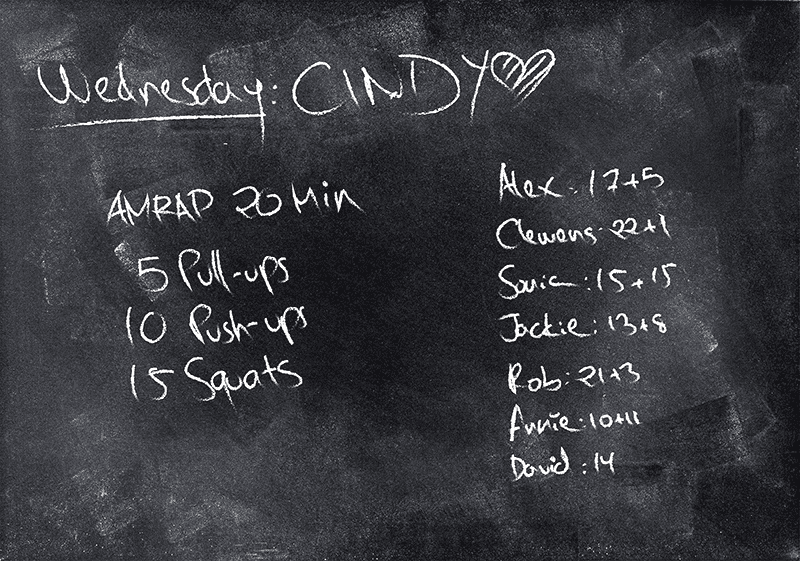 Wednesday: CINDY
AMRAP 20 Min
5 Pull-ups
10 Push-ups
15 Squats
Alex: 17+5
Clemens: 22+1
Sonia: 15+15
Jackie: 13+8
Rob: 21+3
Annie: 10+11
David: 14